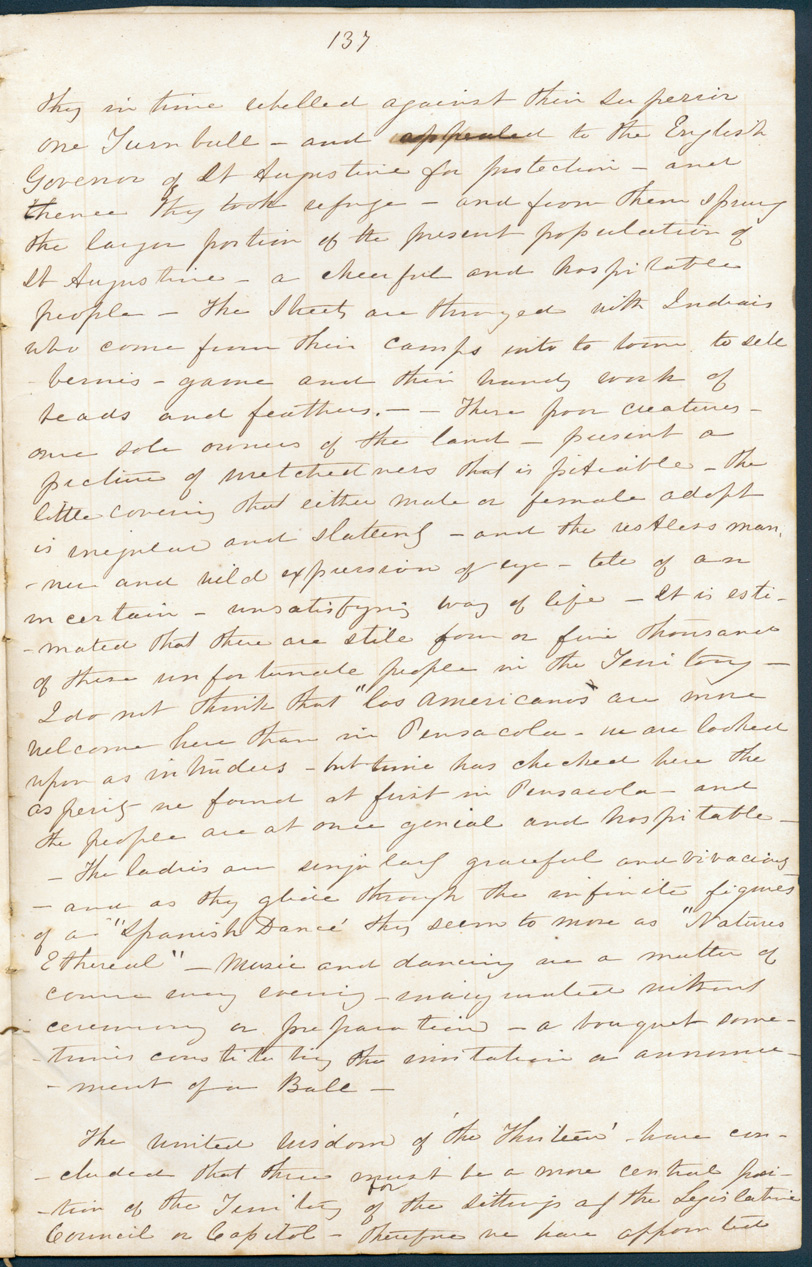 137
they in time rebelled against their superior
one Turnbull - and appealed to the English
Govenor of St Augustine for protection - and
thence they took refuge - and from them sprung
the larger portion of the present population of
St Augustine - a cheerful and hospitable
people - The Streets are thronged with Indians
who come from their camps into to town to sell
berries - game and their handy work of
beads and feathers. - - These poor creatures -
once sole owners of the land - present a
picture of wretchedness that is pitiable - the
little covering that either male or female adopt
is irregular and slatternly - and the restless man,
-ner and wild expression of eye - tell of an
uncertain - unsatisfying way of life - It is esti-
-mated that there are still four or five thousand
of these unfortunate people in the Territory -
I do not think that "los Americanos are more
welcome here than in Pensacola - we are looked
upon as intruders - but time has checked here the
asperity we found at first in Pensacola - and
the people are at once genial and hospitable -
- The ladies are singularly graceful and vivacious
- and as they glide through the infinite figures
of a "Spanish Dance' they seem to move as "Natures
Ethereal" - Music and dancing are a matter of
course every evening - without
ceremony or preparation - a bouquet some-
-times constituting the invitation or announce-
-ment of a Ball -
The united wisdom of 'the Thirteen' have con-
-cluded that there must be a more central posi-
-tion of the Territory for the sittings of the Legislative
Council or Capitol - therefore we have appointed